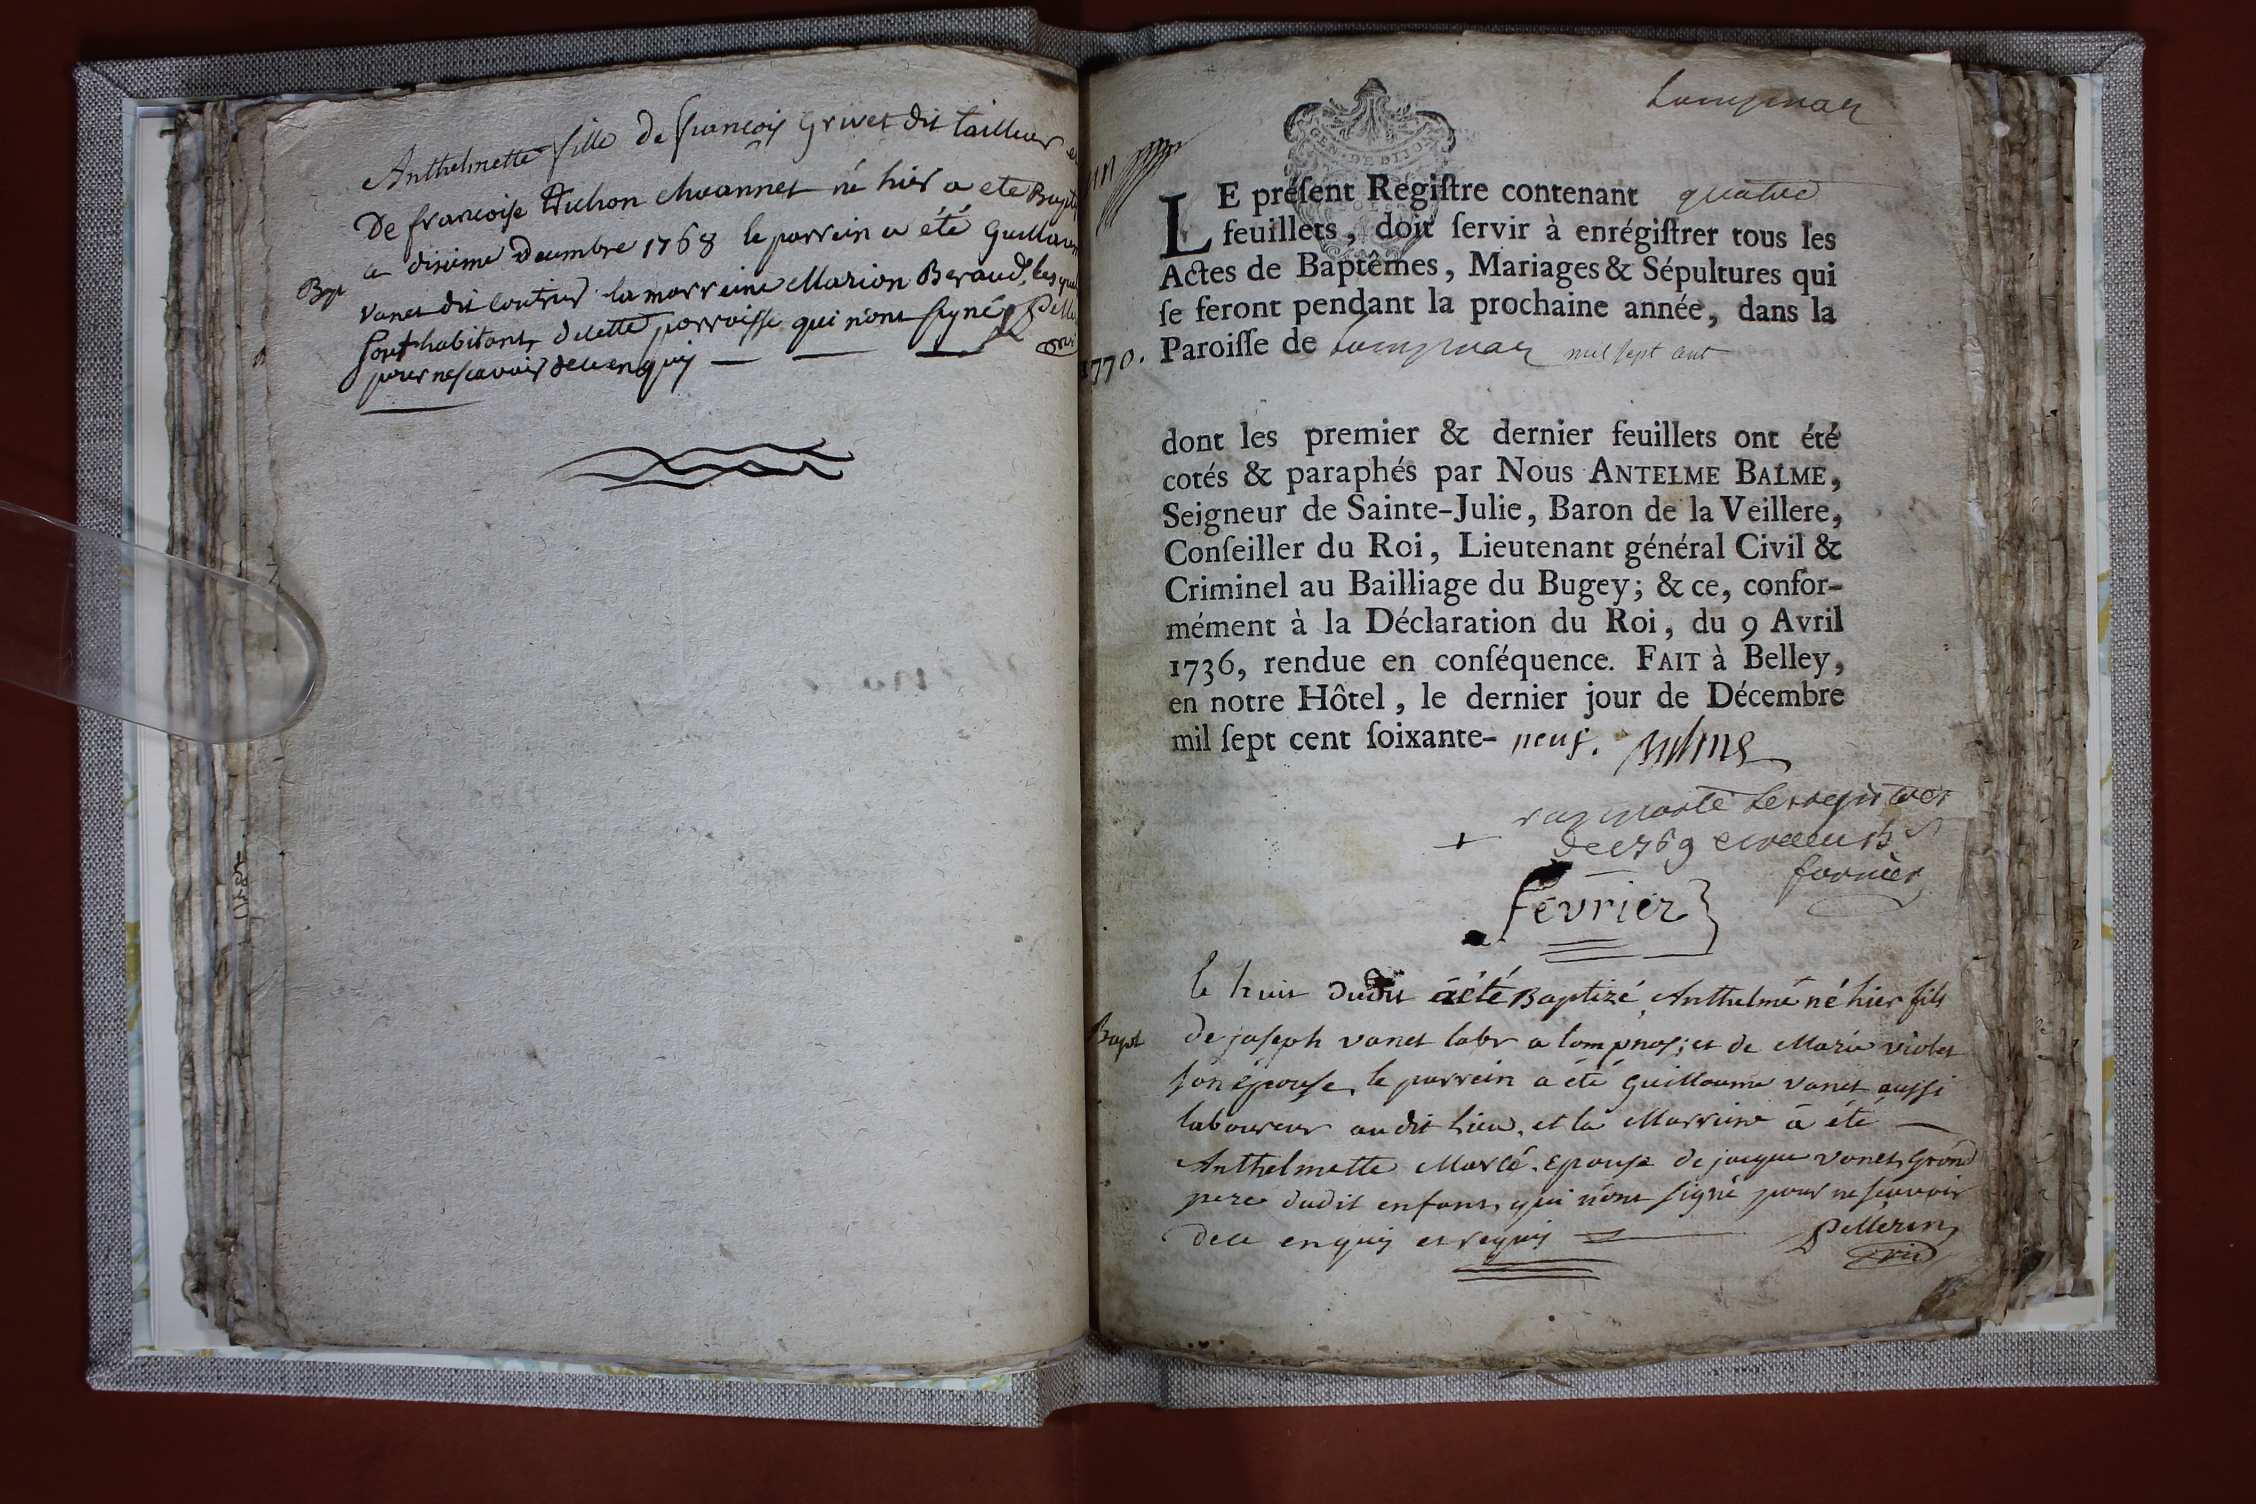 Anthelmette fille de francois Grivet dit tailleur et
De francoise Tuchon Moannet né hier a eté Bapt
ce dixieme decembre 1768 le parrein a été Guillaum
Bapt
vanet dit coutier la marreine Marion Beraud, lesquels
sont habitants decette parroisse qui n'ont signé Pelle
pour ne scavoir dece enquis
Lompnas
GEN. DE DIJON
LE préſent Regiſtre contenant quatre
feuillets, doit ſervir à enrégiſtrer tous les
Actes de Baptêmes, Mariages & Sépultures qui
ſe feront pendant la prochaine année, dans la
Paroiſſe de Lompnas mil sept cent
1770.
dont les premier & dernier feuillets ont été
cotés & paraphés par Nous ANTELME BALME,
Seigneur de Sainte-Julie, Baron de la Veillere,
Conſeiller du Roi, Lieutenant général Civil &
Criminel au Bailliage du Bugey; & ce, confor-
mément à la Déclaration du Roi, du 9 Avril
1736, rendue en conſéquence. FAIT à Belley,
en notre Hôtel, le dernier jour de Décembre
mil ſept cent ſoixante- neuf. Balme
rapporté le registre
de 1769
fevrier
fevrier
le huit dudit a été Baptizé Anthelme né hier fils
Bapt
de joseph vanet labr a lompnas; et de Marie violet
son épouse, le parrein a été Guillaume vanet aussi
laboureur audit lieu, et la Marreine a été
Anthelmette Marcé. Epouse de jacque vanet, Grand
pere dudit enfant, qui n'ont signé pour ne scavoir
dece enquis et requis Pellerin